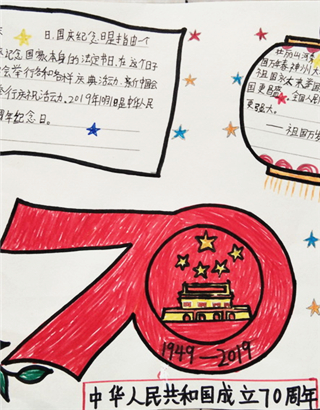 日,国庆纪念日是指由一个
纪念国家本身的法定节日,在这个日子
会举行各种各样庆典活动,
举行庆祝活动。2019年10月1日是中华人民
周年纪念日。
国万年春,神州大
祖国
国更昌盛,全国人民
更强大。
——祖国万岁
1949—2019
70
中华人民共和国成立70周年